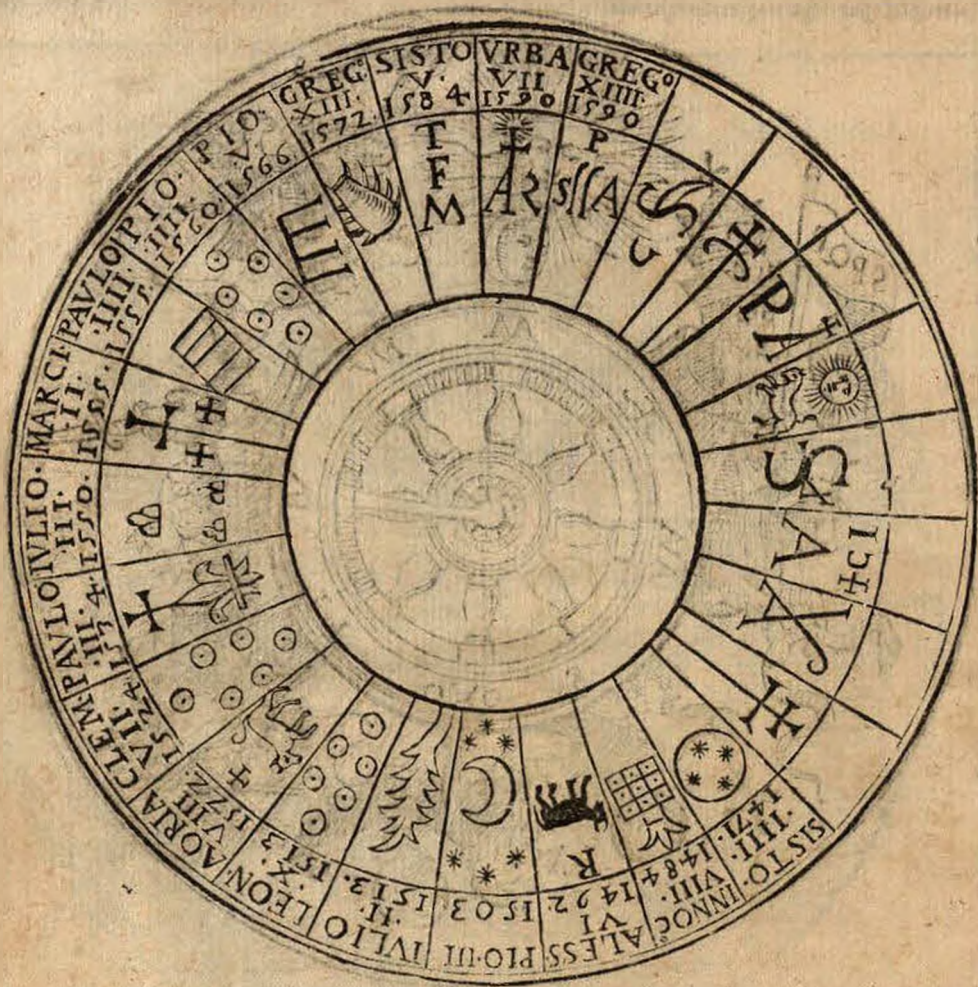 SISTO·
·IIII·
1471·
INNOC
VIII·
1484
ALESS
VI
1492
R
PIO·III
1503·
IVLIO
·II·
1513·
LEON·
·X·
1513
AORIA
VIII
1572·
CLEM·
VII·
1524·
PAVLO
·III·
IVLIO·
III·
1550·
MARCI·
·II·
1555·
PAVLO
·IIII·
1555·
PIO·
IIII·
1560
PIO·
V·
1566
GREGº
XIII·
1572
SISTO
·V·
1584
T
F
M
VRBA
VII
1590
GREGº
XIIII
1590
P
PA